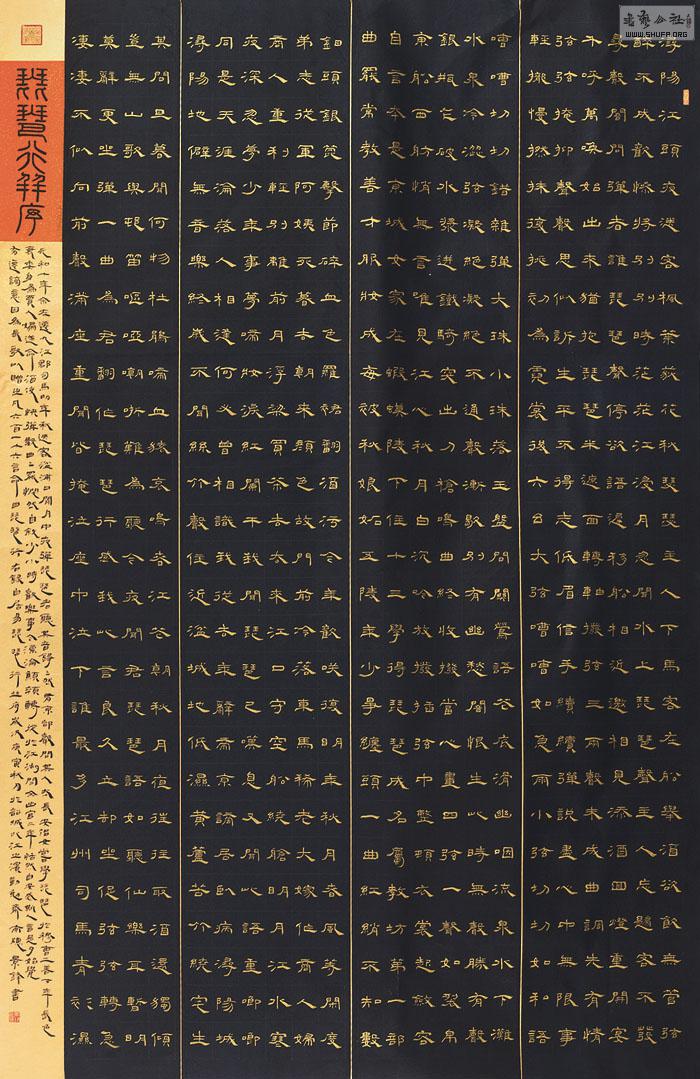 潯陽江頭夜送客楓葉荻花秋瑟瑟主人下馬客在船舉酒欲飲無管弦
醉不成歡慘將別別時茫茫江浸月忽聞水上琵琶聲主人忘歸客不發
尋聲闇問彈者誰琵琶聲停欲語遲移船相近邀相見添酒回燈重開宴
千呼萬喚始出來猶抱琵琶半遮面轉軸撥弦三兩聲未成曲調先有情
弦弦掩抑聲聲思似訴生平不得志低眉信手續續彈說盡心中無限事
輕攏慢撚抹復挑初為霓裳後六么大弦嘈嘈如急雨小弦切切如私語
嘈嘈切切錯雜彈大珠小珠落玉盤間關鶯語花底滑幽咽流泉水下灘
水泉冷澀弦凝絕凝絕不通聲漸歇別有幽愁闇恨生此時無聲勝有聲
銀瓶乍破水漿迸鐵騎突出刀槍鳴曲終收撥當心畫四弦一聲如裂帛
東船西舫悄無言唯見江心秋月白沉吟放撥插弦中整頓衣裳起斂容
自言本是京城女家在蝦蟆陵下住十三學得琵琶成名屬教坊第一部
曲罷常教善才服妝成每被秋娘妒五陵年少爭纏頭一曲紅綃不知數
鈿頭銀篦擊節碎血色羅裙翻酒污今年歡笑復明年秋月春風等閒度
弟走從軍阿姨死暮去朝來顏色故門前冷落車馬稀老大嫁作商人婦
商人重利輕別離前月浮梁買茶去去來江口守空船繞艙明月江水寒
夜深忽夢少年事夢啼妝淚紅闌干我聞琵琶已嘆息又聞此語重唧唧
同是天涯淪落人相逢何必曾相識我從去年辭帝京謫居臥病潯陽城
潯陽地僻無音樂終歲不聞絲竹聲住近湓城地低濕黃蘆苦竹繞宅生
其間旦暮聞何物杜鵑啼血猿哀鳴春江花朝秋月夜往往取酒還獨傾
豈無山歌與村笛嘔啞嘲哳難為聽今夜聞君琵琶語如聽仙樂耳暫明
莫辭更坐彈一曲為君翻作琵琶行感我此言良久立卻坐促弦弦轉急
淒淒不似向前聲滿座重聞皆掩泣座中泣下誰最多江州司馬青衫濕
琵琶行并序
元和十年余左遷九江郡司馬明年秋送客湓浦口聞舟中夜彈琵琶者聽其音錚錚然有京都聲問其人本長安倡女嘗學琵琶於穆曹二善才年長色
衰委身為賈人婦遂命酒使快彈數曲曲罷憫然自敘少小時歡樂事今漂淪憔悴轉徙於江湖間余出官二年恬然自安感斯人言是夕始覺
有遷謫意因為長歌以贈之凡六百一十六言命曰琵琶行右錄白居易琵琶行並序歲次庚寅秋月於韶城北江之濱
书法公社
WWW.SHUFP.COM